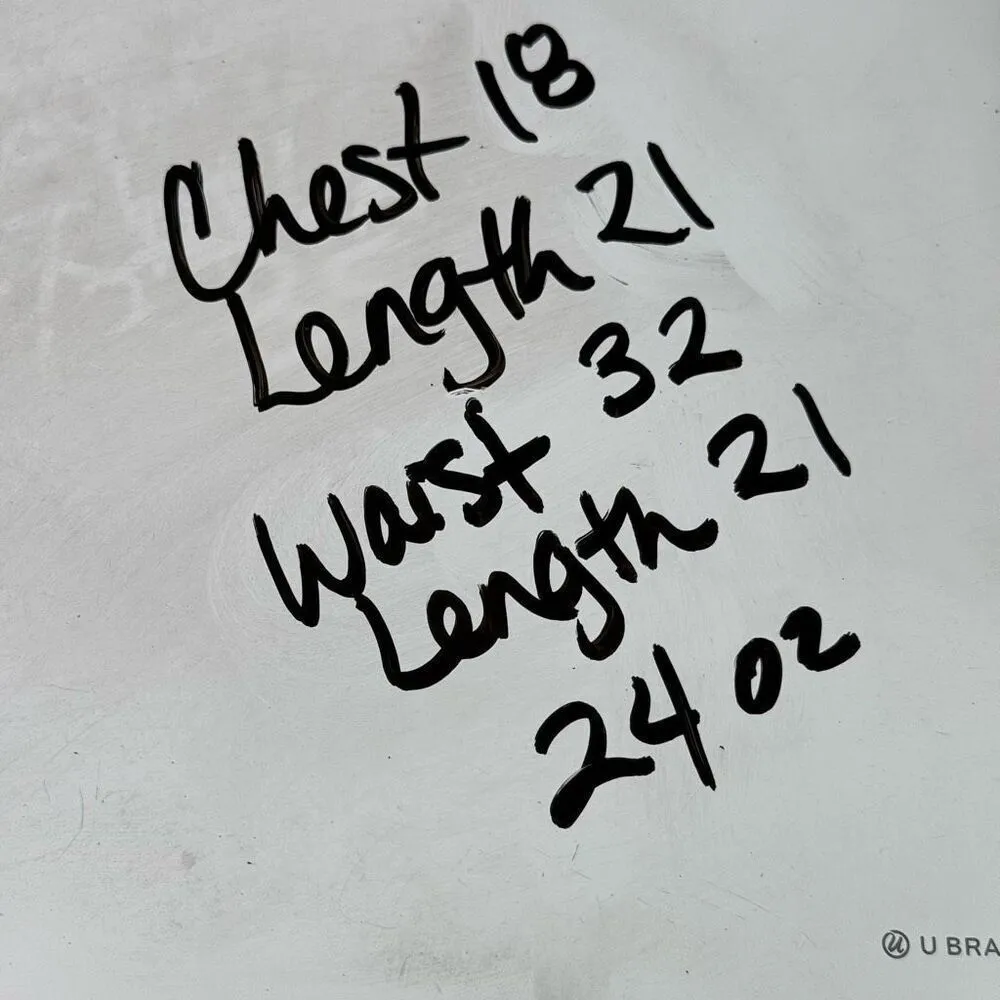 Chest 18
Length 21
Waist 32
Length 21
24 oz
U BRA